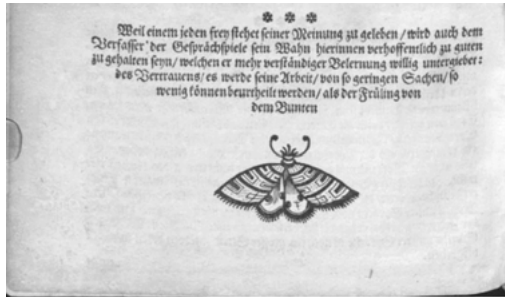 Weil einem jeden frey stehet seiner Meinung zu geleben / wird auch dem
Verfasser der Gesprächspiele sein Wahn hierinnen verhoffentlich zu guten
zu gehalten seyn / welchen er mehr verständiger Belernung willig untergiebet:
des Vertrauens / es werde seine Arbeit / von so geringen Sachen / so
wenig können beurtheilt werden / als der Früling von
dem Bunten